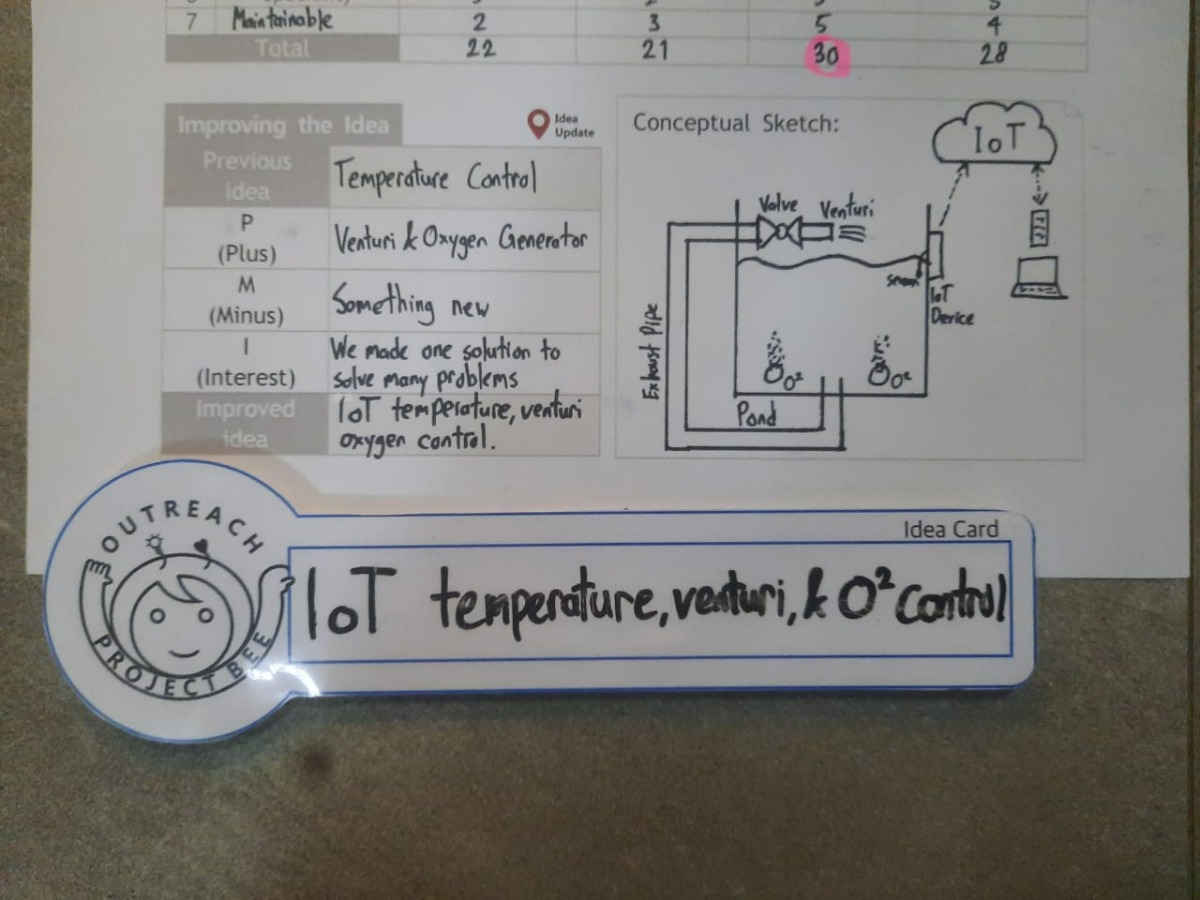 7 Maintainable 2 3 5 4
Total 22 21 30 28
Improving the Idea
Idea
Update
Previous
idea
Temperature Control
P
(Plus)
Venturi & Oxygen Generator
M
(Minus)
Something new
I
(Interest)
We made one solution to
solve many problems
Improved
idea
IoT temperature, venturi
oxygen control.
Conceptual Sketch:
IoT
Valve
Venturi
Exhaust Pipe
IoT
Device
O²
O²
Pond
Idea Card
OUTREACH
PROJECT BEE
IoT temperature, venturi, & O² control